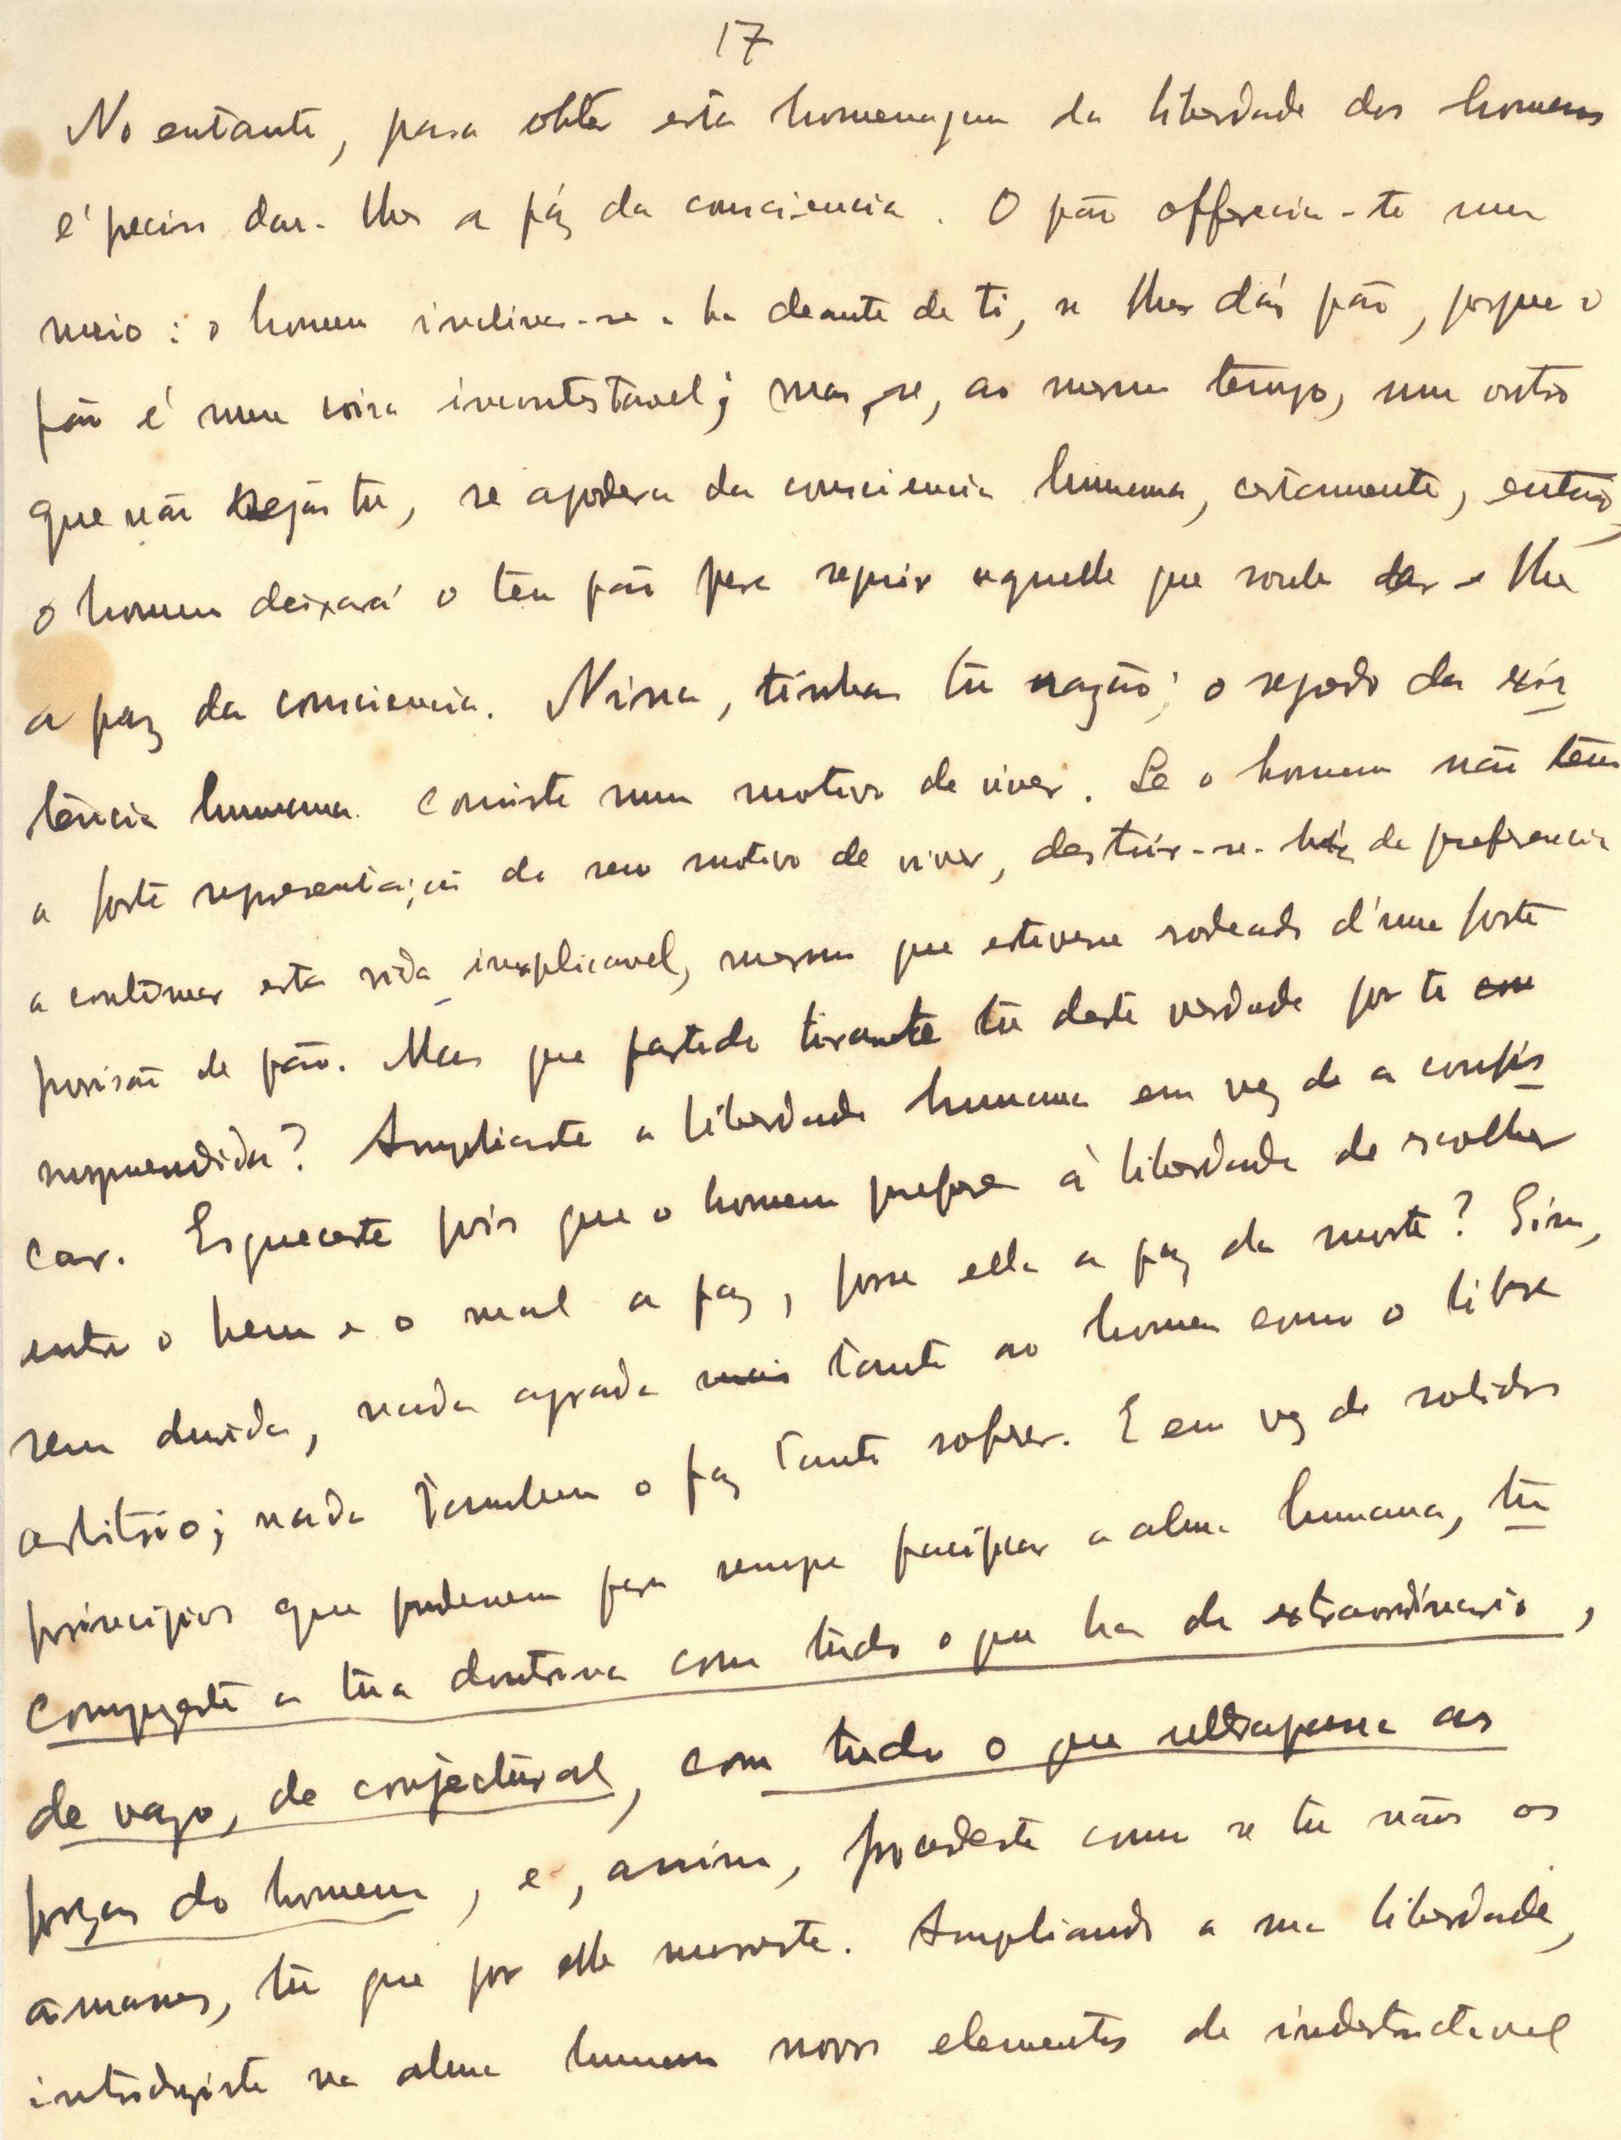 17
No entante, para obter esta homenagem da liberdade dos homens
é preciso dar-lhes a páz da consciencia. O pão offerecia-te um
meio: o homem inclinar-se-ha deante de ti, se lhes dás pão, porque o
pão é uma coisa incontestavel; mas, se, ao mesmo tempo, um outro
que não sejas tu, se apodera da consciencia humana, certamente, então,
o homem deixará o teu pão para seguir aquelle que soube dar-lhe
a paz da consciencia. N'isso, tinhas tu razão; o segredo da exis
tência humana consiste num motivo de viver. Se o homem não tem
a forte representação do seu motivo de viver, destruir-se-há de preferencia
a continuar esta vida inexplicavel, mesmo que estivesse rodeado d'uma forte
provisão de pão. Mas que partido tiraste tu desta verdade por ti
surpreendida? Ampliaste a liberdade humana em vez de a confis
car. Esqueceste pois que o homem prefere à liberdade de escolher
entre o bem e o mal a paz, fosse ella a paz da morte? Sim,
sem duvida, nada agrada tanto ao homem como o livre
arbitrio; nada tambem o faz tanto sofrer. E em vez de solidos
principios que pudessem para sempre pacificar a alma humana, tu
compuzeste a tua doutrina com tudo o que ha de extraordinario,
de vago, de conjectural, com tudo o que ultrapassa as
forças do homem, e, assim, procedeste como se tu não os
amasses, tu que por elle morreste. Ampliando a sua liberdade,
introduziste na alma humana novos elementos de indestructivel